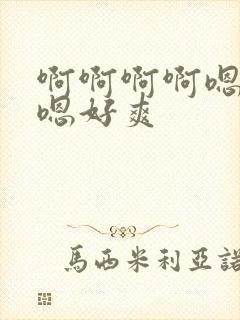 啊啊啊啊嗯
嗯好爽
馬西米利亞諾